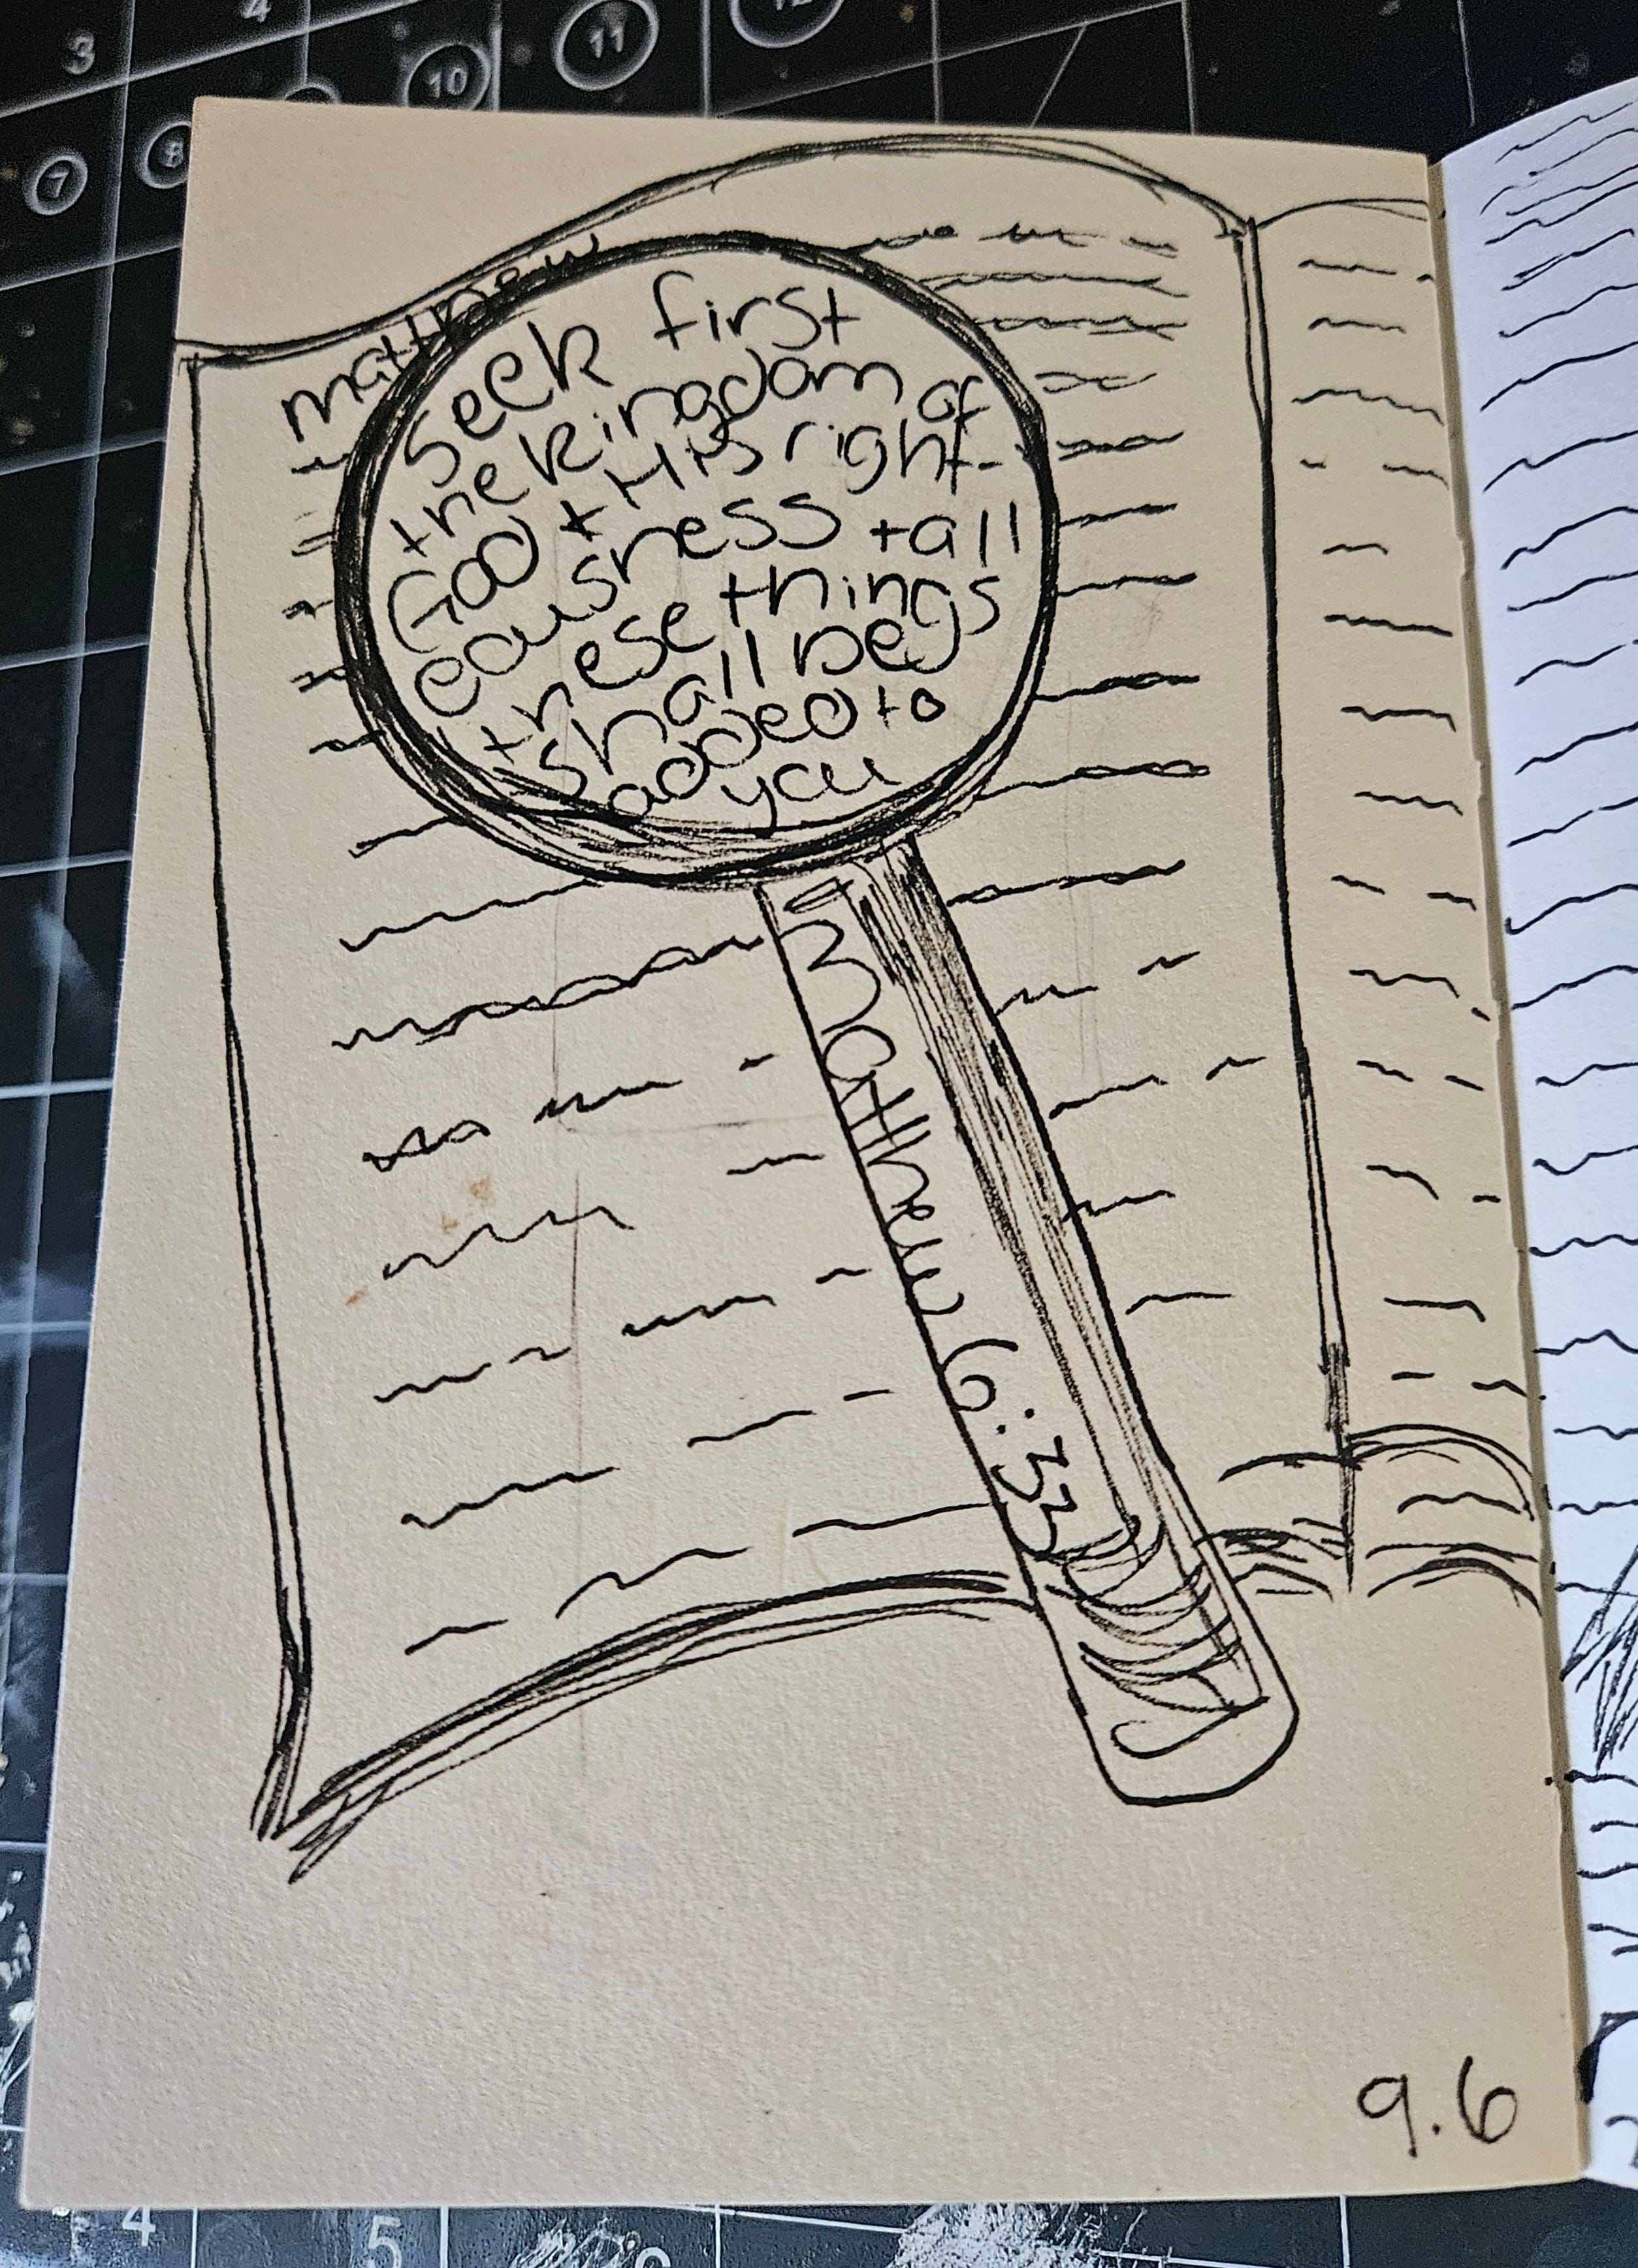 3
4
10
11
12
7
8
matthew
seek first
the kingdom of
God + His right-
eousness + all
these things
shall be
added to
you
Matthew 6:33
9.6
4
5